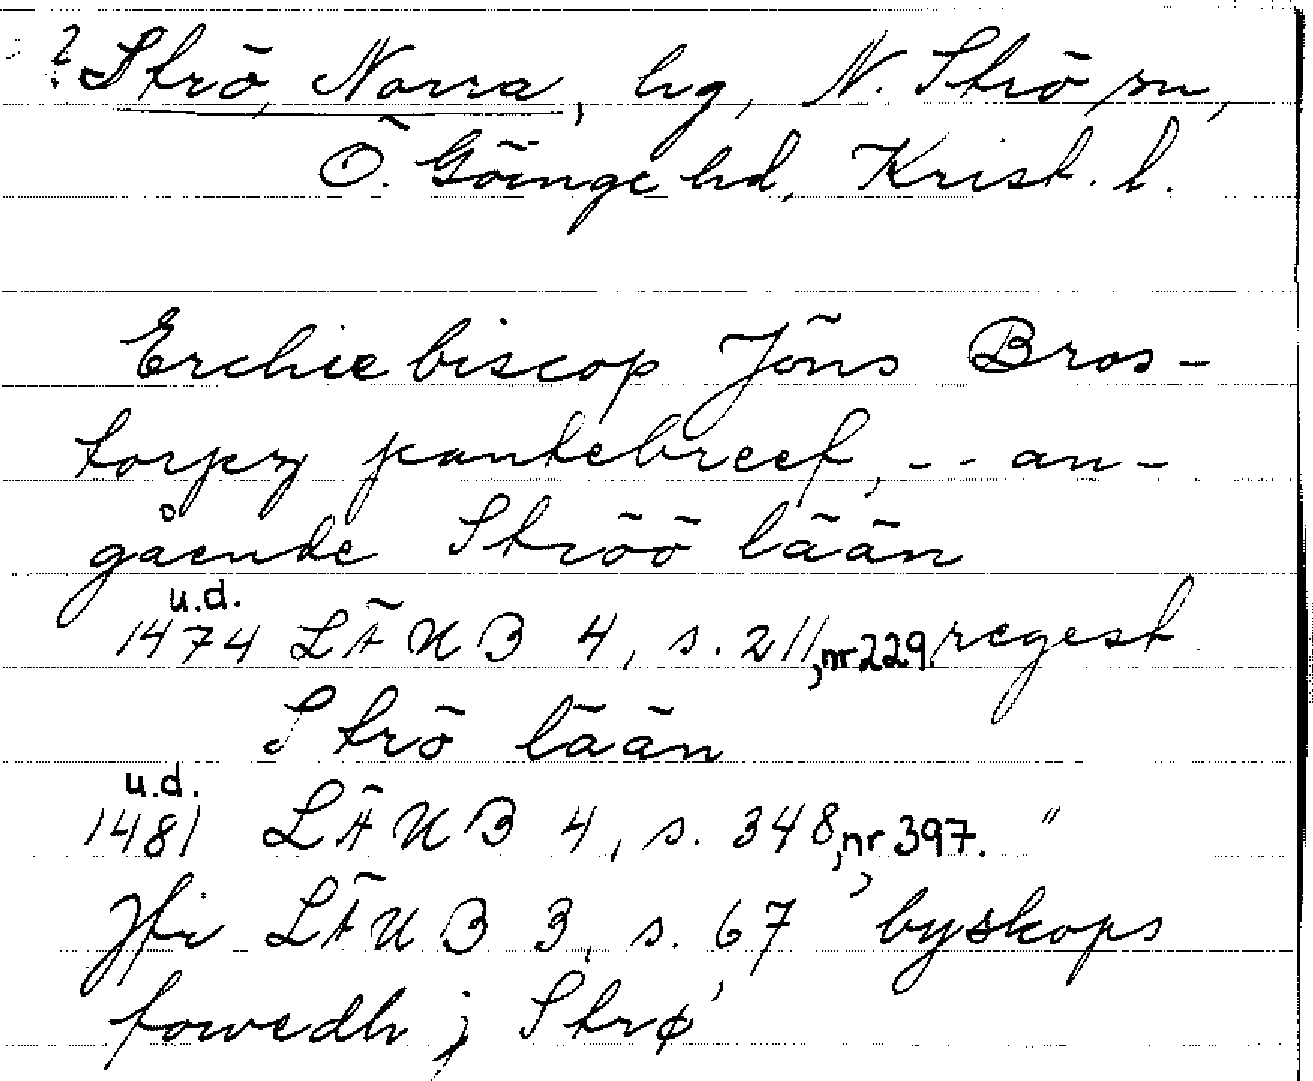 ? Strö, Norra, hg, N. Strö sn,
Ö. Göinge hd, Krist. l.
Erchiebiscop Jöns Bros-
torpz pantebreef, -- an-
gående Ströö lään
u.d.
1474 LÄUB 4, s. 211, nr 229. regest
Strö lään
u.d.
1481 LÄUB 4, s. 348, nr 397. "
Jfr LÄUB 3, s. 67 ’byskops
fowedh j Strø’